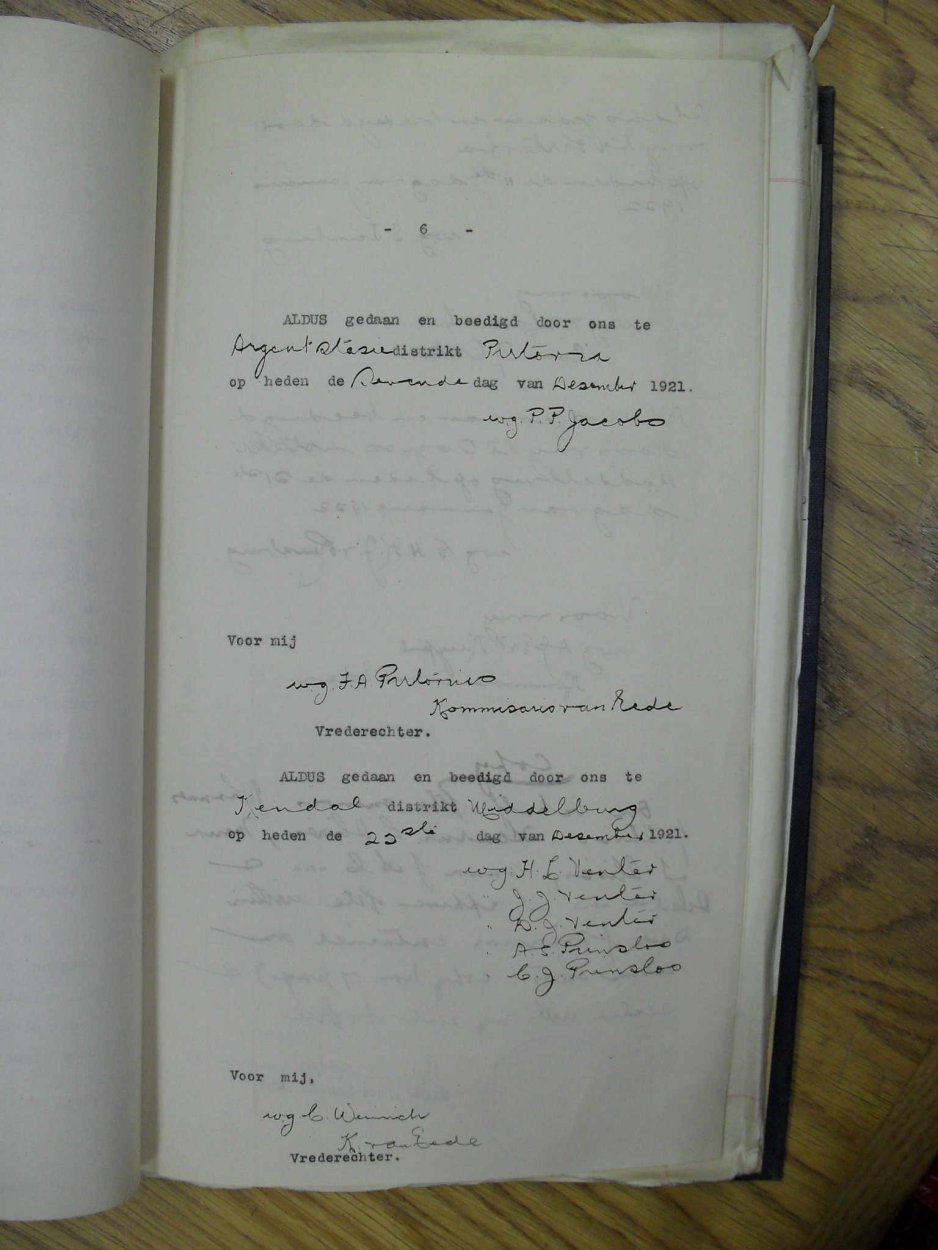 - 6 -
ALDUS gedaan en beedigd door ons te
Argent Stasie distrikt Pretoria
op heden de Sevende dag van Desember 1921.
w.g. P.P. Jacobs
Voor mij
w.g. F.A. Pretorius
Kommisaris van Eede
Vrederechter.
ALDUS gedaan en beedigd door ons te
Kendal distrikt Middelburg
op heden de 23ste dag van Desember 1921.
w.g H. L. Venter
J. J. Venter
" D. J. Venter
" A. S. Prinsloo
C. J. Prinsloo
Voor mij,
w.g C.
K. van Eede
Vrederechter.